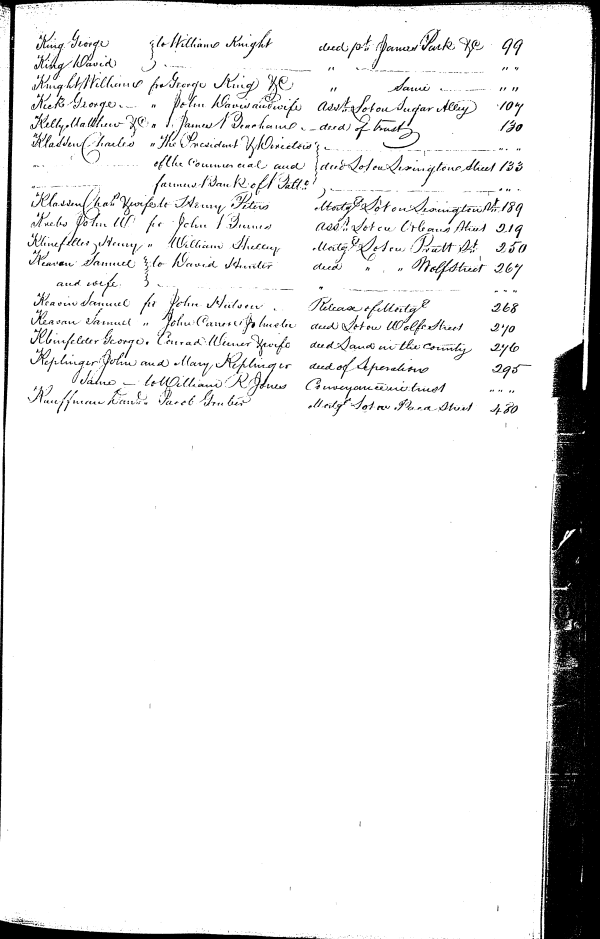 King George } to William Knight deed pt. James Park &C 99
King David } " " "
Knight William fr George King &C " Same " "
Keck George " John Davis and wife Asst. Lot on Sugar Alley 107
Kelly Matthew &C " James deed of trust 130
Klassen Charles " The President & Directors } " "
of the Commercial and } deed Lot on Lexington Street 133
farmers Bank of Balto. } " "
Klassen Chas. & wife to Henry Peters Mortg. Lot on Lexington St. 189
Krebs John W fr John Asst. Lot on Orleans Street 219
Klinefelter Henry " William Shelley Mortg. Lot on Pratt St. 250
Keavan Samuel } to David Hunter deed " " Wolf Street 267
and wife } " " "
Keavin Samuel fr John Hutson Release of Mortge. 268
Keavan Samuel " John Carrere deed Lot on Wolfe Street 270
Kleinfelder George " Conrad Weiner & wife deed Land in the County 276
Keplinger John and Mary Keplinger deed of Seperation 295
Same to William R Jones Conveyance in trust " "
Kauffman " Jacob Gruber Mortg. Lot on Paca Street 480